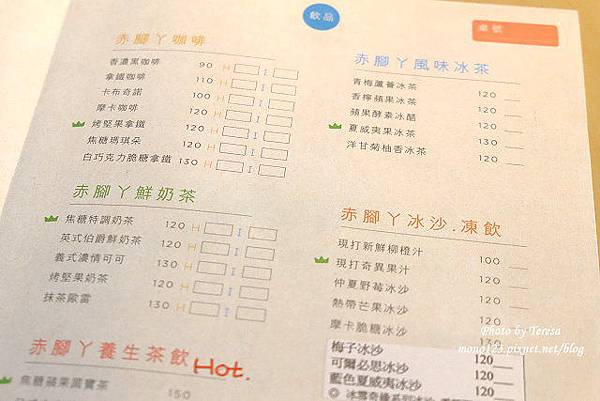 飲品
桌號
赤腳丫咖啡
香濃黑咖啡 90 H I
拿鐵咖啡 110 H I
卡布奇諾 100 H I
摩卡咖啡 120 H I
烤堅果拿鐵 120 H I
焦糖瑪琪朵 120 H I
白巧克力脆糖拿鐵 130 H I
赤腳丫鮮奶茶
焦糖特調奶茶 120 H I
英式伯爵鮮奶茶 120 H I
義式濃情可可 130 H I
烤堅果奶茶 120 H I
抹茶歐蕾 130 H I
赤腳丫養生茶飲 Hot.
焦糖蘋果國寶茶 150
赤腳丫風味冰茶
青梅蘆薈冰茶 120
香檸蘋果冰茶 120
蘋果酵素冰醋 120
夏威夷果冰茶 130
洋甘菊柚香冰茶 120
赤腳丫冰沙.凍飲
現打新鮮柳橙汁 100
現打奇異果汁 120
仲夏野莓冰沙 120
熱帶芒果冰沙 120
摩卡脆糖冰沙 130
梅子冰沙 120
可爾必思冰沙 120
藍色夏威夷冰沙 120
Photo by Teresa
mono123.pixnet.net/blog